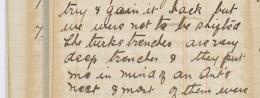 try & gain it back but
7 we were not to be shifted
The turks trenches are very
deep trenches & they put
me in mind of an Ant's
nest & most of them were